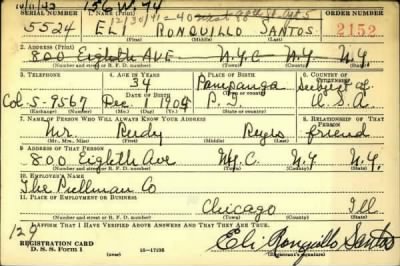 156 W 74
SERIAL NUMBER 1. NAME (Print) ORDER NUMBER
5524 ELI RONQUILLO SANTOS 2152
(First) (Middle) (Last)
2. ADDRESS (Print)
800 Eighth AVE N.Y.C. N.Y. N.Y.
(Number and street or R. F. D. number) (Town) (County) (State)
3. TELEPHONE 4. AGE IN YEARS 5. PLACE OF BIRTH 6. COUNTRY OF CITIZENSHIP
34 Pampanga Subject of
DATE OF BIRTH (Town or county)
Col. 5-9567 Dec. 1909 P.I. U.S.A.
(Exchange) (Number) (Mo.) (Day) (Yr.) (State or country)
7. NAME OF PERSON WHO WILL ALWAYS KNOW YOUR ADDRESS 8. RELATIONSHIP OF THAT PERSON
Mr. Rudy Reyes friend
(Mr., Mrs., Miss) (First) (Middle) (Last)
9. ADDRESS OF THAT PERSON
800 Eighth Ave N.Y.C. N.Y. N.Y.
(Number and street or R. F. D. number) (Town) (County) (State)
10. EMPLOYER'S NAME
The Pullman Co
11. PLACE OF EMPLOYMENT OR BUSINESS
Chicago Ill
(Number and street or R. F. D. number) (Town) (County) (State)
I AFFIRM THAT I HAVE VERIFIED ABOVE ANSWERS AND THAT THEY ARE TRUE.
REGISTRATION CARD
D. S. S. Form 1 (over) 16-17105 Eli Ronquillo Santos
(Registrant's signature)